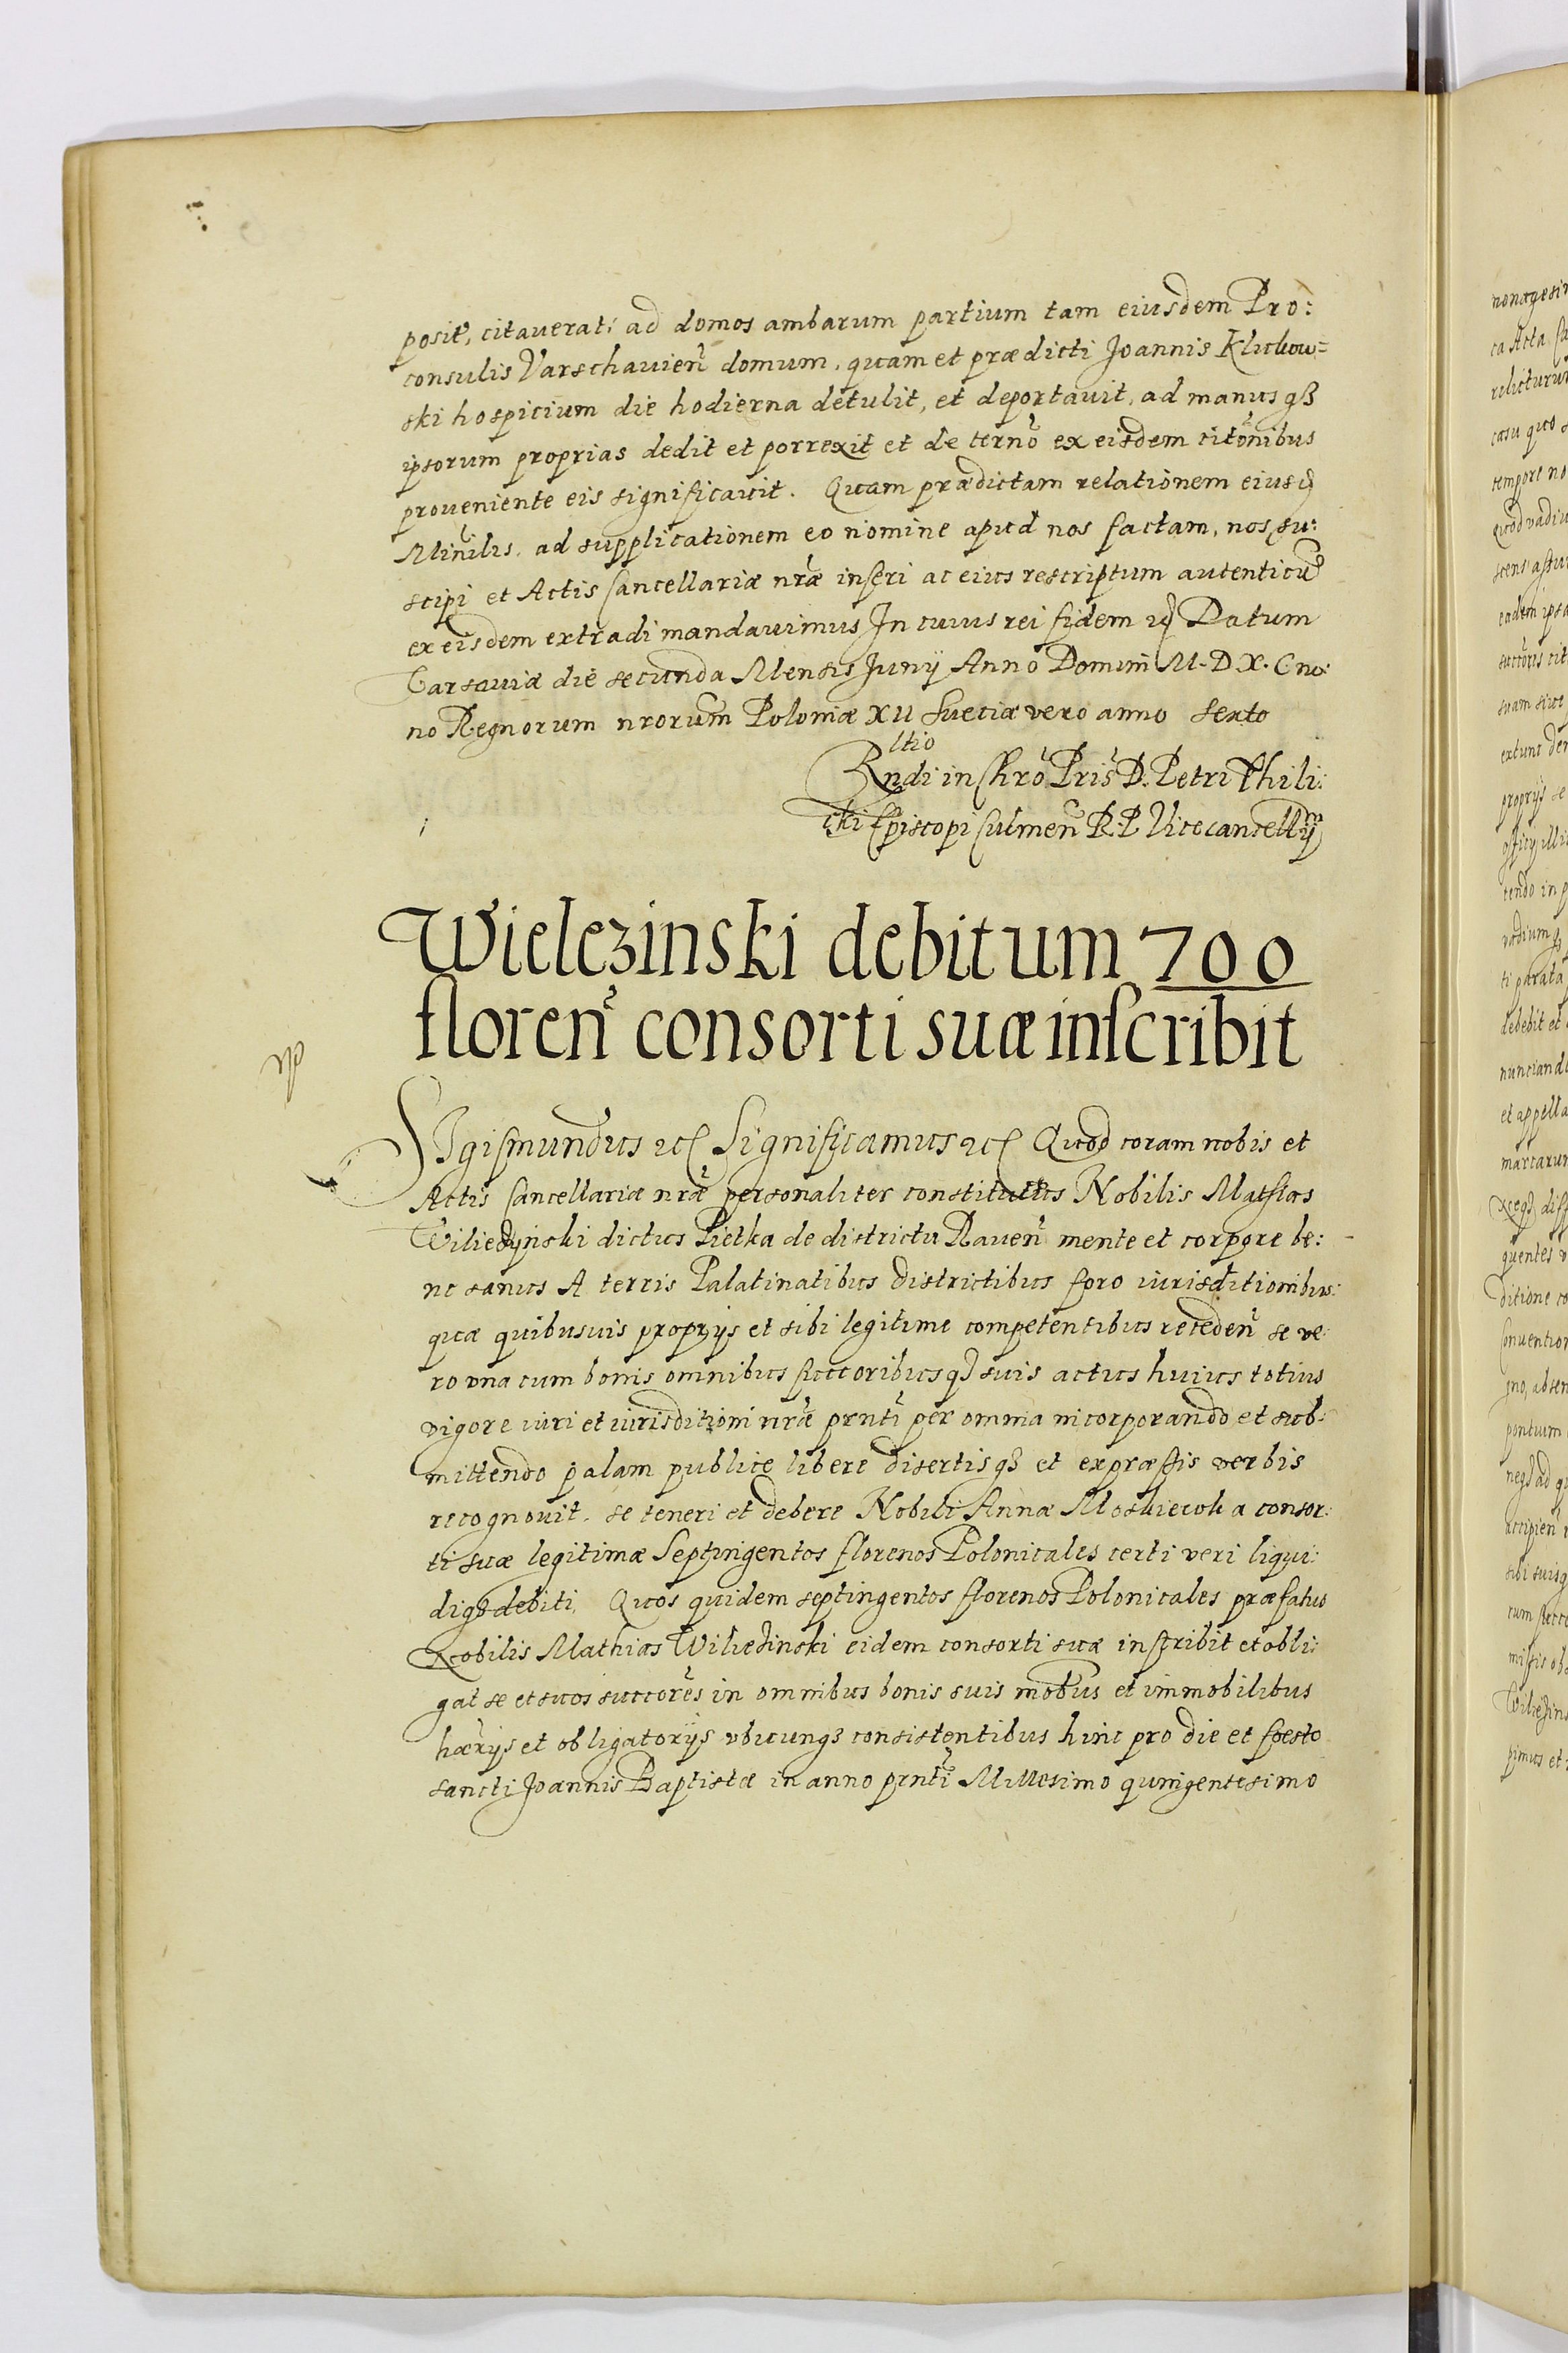 posit, citaverat, ad domos ambarum partium tam eiusdem Pro:
consulis Varschavien domum, quam et prædicti Joannis Klukow=
ski hospicium die hodierna detulit, et deportavit, ad manus qз
ipsorum proprias dedit et porrexit et de termo ex eisdem citonibus
proveniente eis significavit. Quam prædictam relationem eiusd
Minilis, ad supplicationem eo nomine apud nos factam, nos su:
scipi et Actis Cancellariæ nræ inseri ac eius rescriptum autenticu
ex eisdem extradi mandavimus In cuius rei fidem Datum
Varsaviæ die secunda Mensis Junij Anno Domini M.D.X.C no:
no Regnorum nrorum Poloniæ XII Sueciæ vero anno sexto
Rltio
Rndi in Chro Pris D. Petri Thili:
cki Episcopi Culmen R. P. Vicecancellrij
Wielezinski debitum 700
floren consorti suæ inscribit
SIgismundus etc Significamus etc Quod coram nobis et
Actis Cancellariæ nræ personaliter constitutus Nobilis Mathias
Wiliezinski dictus Pietka de districtu Raven mente et corpore be:
ne sanus A terris Palatinatibus districtibus foro iurisditionibus:
quæ quibusvis proprijs et sibi legitime competentibus receden se ve:
ro una cum bonis omnibus succoribusqз suis actus huius totius
vigore iuri et iurisditioni nræ prnti per omnia incorporando et sub:
mittendo palam publice libere disertisqз et expræssis verbis
recognovit, se teneri et debere Nobili Annæ Moskiewk a consor:
ti suæ legitimæ Septingentos florenos Polonicales certi veri liqui:
diqз debiti, Quos quidem septingentos florenos Polonicales præfatus
Nobilis Mathias Wiliezinski eidem consorti suæ inscribit et obli:
gat se et suos succores in omnibus bonis suis mobus et immobilibus
hærijs et obligatorijs ubicunqз consistentibus hinc pro die et foesto
sancti Joannis Baptistæ in anno prnti Millesimo quingentesimo